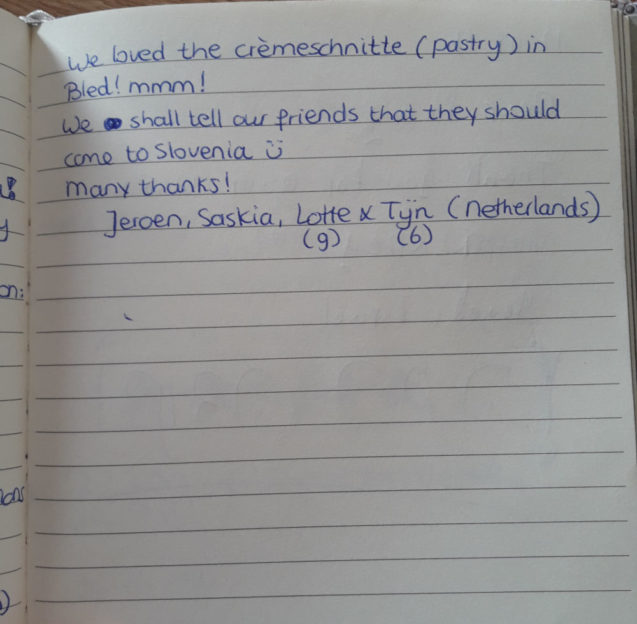 We loved the crèmeschnitte (pastry) in
Bled! mmm!
We shall tell our friends that they should
come to Slovenia ü
many thanks!
Jeroen, Saskia, Lotte & Tÿn (Netherlands)
(9) (6)